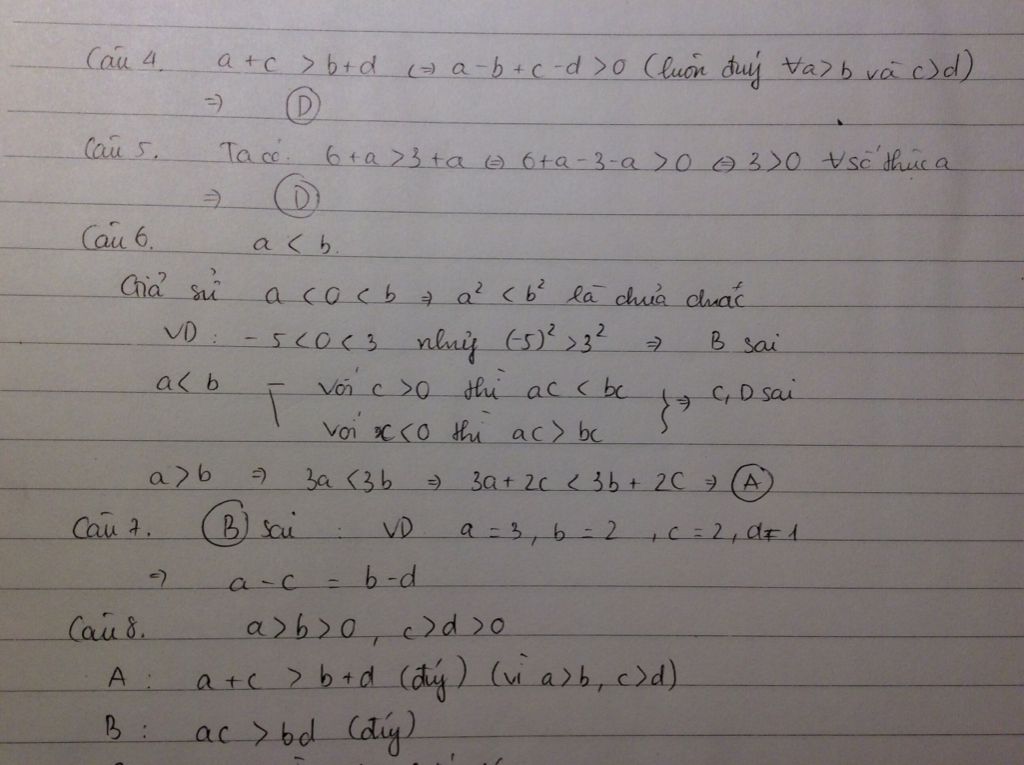 Câu 4. a + c > b + d ⇔ a - b + c - d > 0 (luôn đúg ∀a > b và c > d)
⇒ D
Câu 5. Ta có. 6 + a > 3 + a ⇔ 6 + a - 3 - a > 0 ⇔ 3 > 0 ∀ số thức a
⇒ D
Câu 6. a < b.
Giả sử a < 0 < b ⇒ a² < b² là chưa chắc
VD : - 5 < 0 < 3 nhưg (-5)² > 3² ⇒ B sai
a < b với c > 0 thì ac < bc } ⇒ C, D sai
với x < 0 thì ac > bc
a > b ⇒ 3a < 3b ⇒ 3a + 2c < 3b + 2C ⇒ A
Câu 7. B sai : VD a = 3, b = 2 , c = 2, d = 1
⇒ a - c = b - d
Câu 8. a > b > 0 , c > d > 0
A : a + c > b + d (đúg) (vì a > b, c > d)
B : ac > bd (đúg)